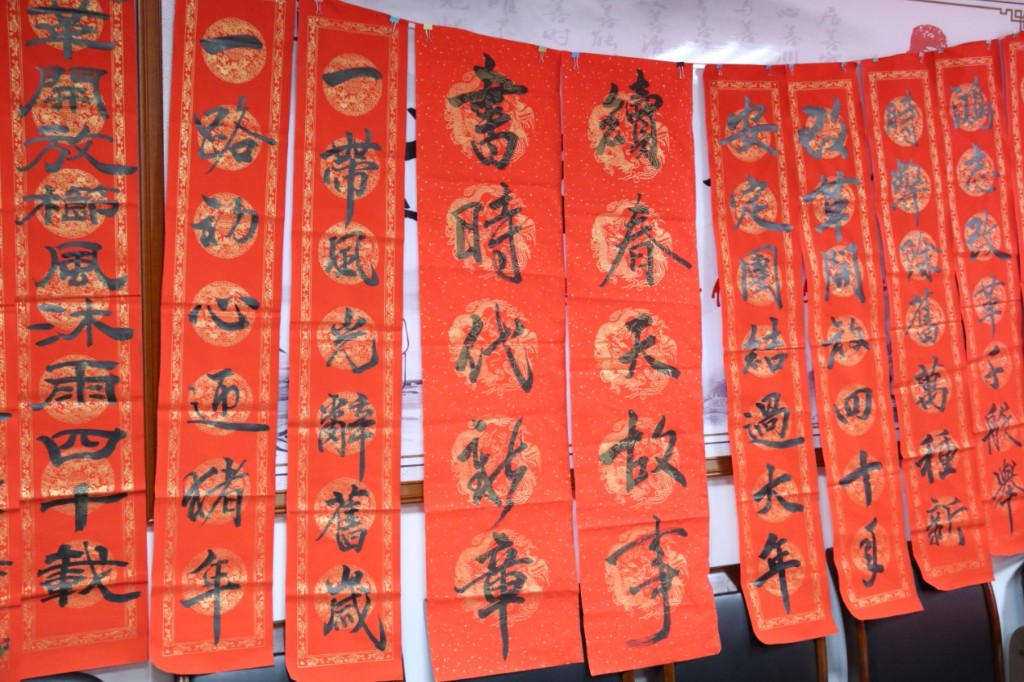 志改革千般舉
時除舊萬種新
改革開放四十年
安定團結過大年
續春天故事
書時代新章
一帶風光辭舊歲
一路初心迎猪年
革開放櫛風沐雨四十載